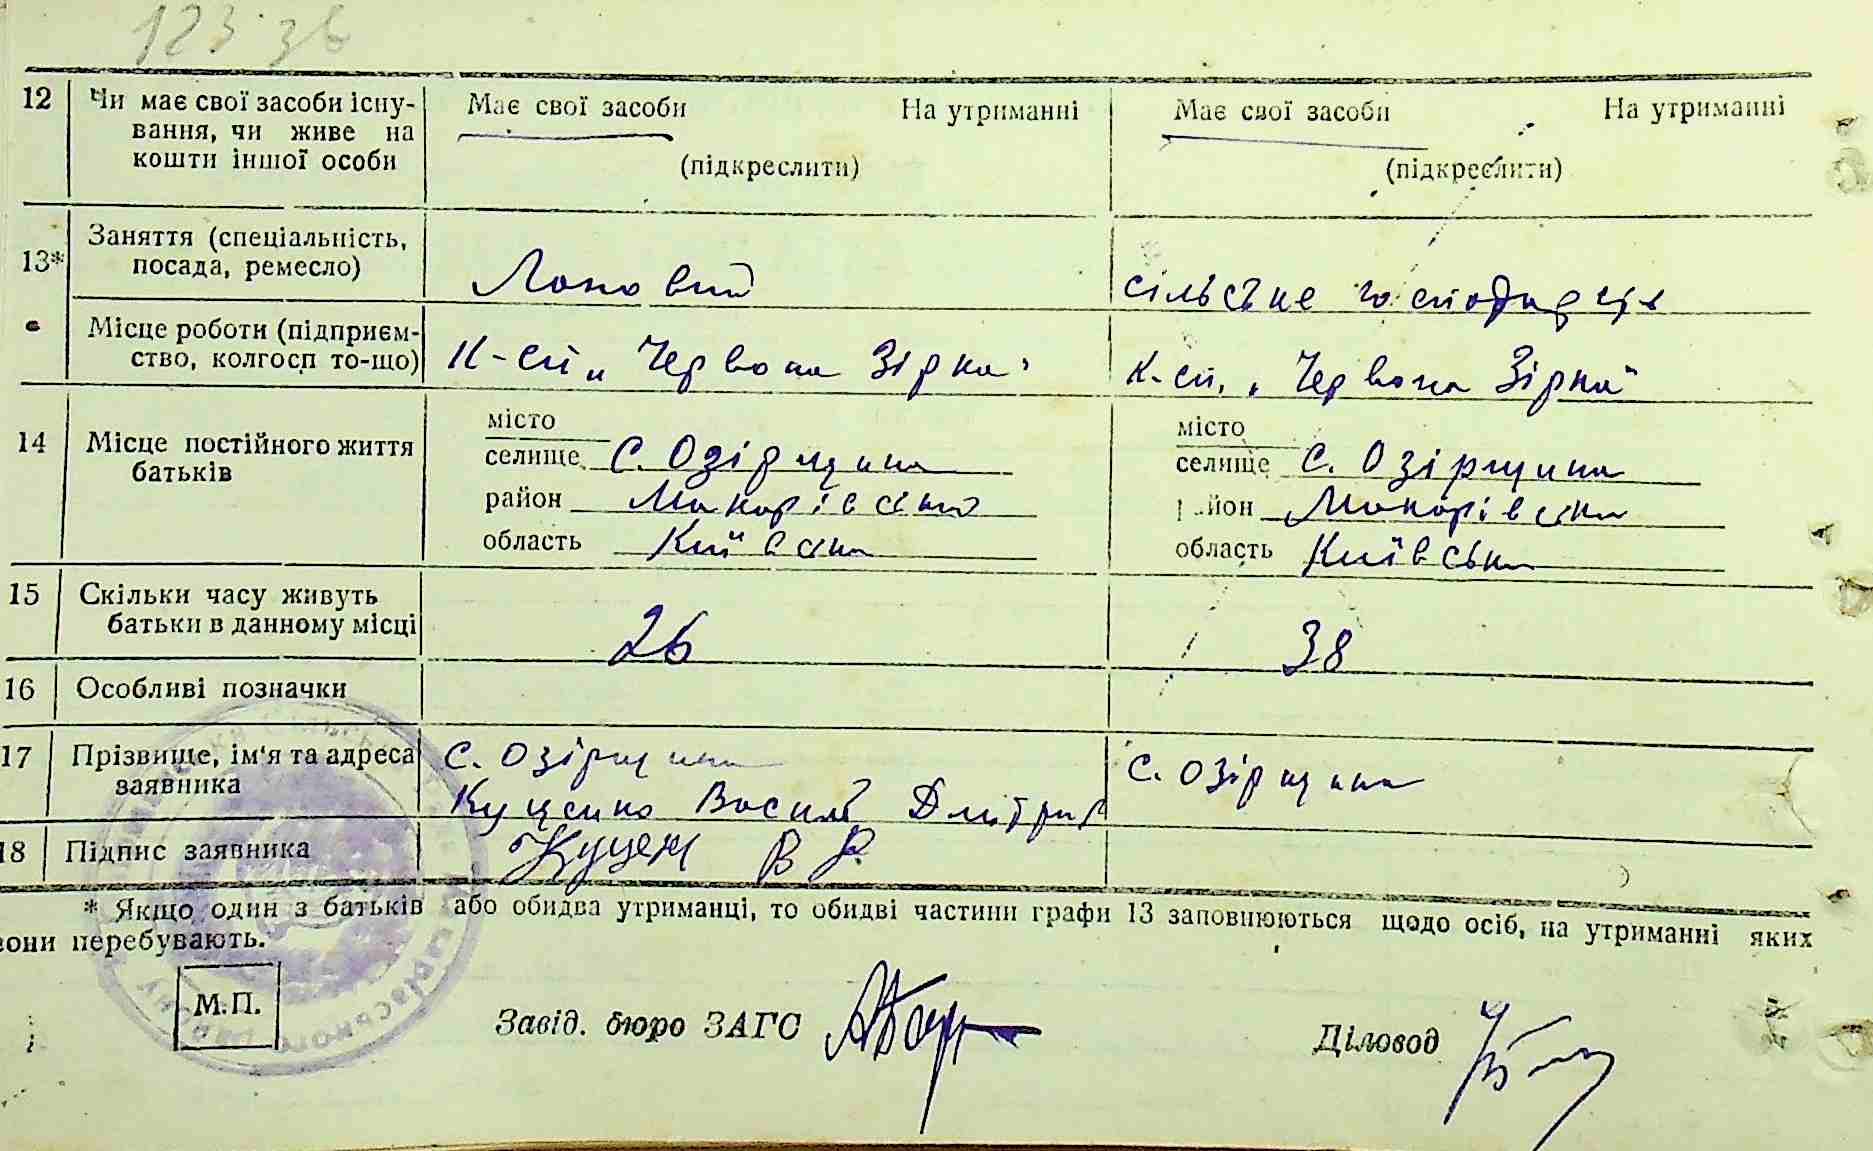 123 зв
12 Чи має свої засоби існу- Має свої засоби На утриманні Має свої засоби На утриманні
вання, чи живе на
кошти іншої особи (підкреслити) (підкреслити)
Заняття (спеціальність,
13* посада, ремесло) Лановий сільське господарство
Місце роботи (підприєм-
ство, колгосп то-що) К-сп „Червона Зірка" К-сп. „Червона Зірка"
місто місто
14 Місце постійного життя селище с. Озірщина селище с. Озірщина
батьків район Макарівський район Макарівськи
область Київська область Київська
15 Скільки часу живуть
батьки в данному місці 26 38
16 Особливі позначки
17 Прізвище, ім'я та адреса с. Озірщина с. Озірщина
заявника Куценко Василь Дмітров
18 Підпис заявника Куценк В Д.
* Якщо один з батьків або обидва утриманці, то обидві частини графи 13 заповнюються щодо осіб, на утриманні яких
вони перебувають.
М.П.
Завід. бюро ЗАГС Діловод